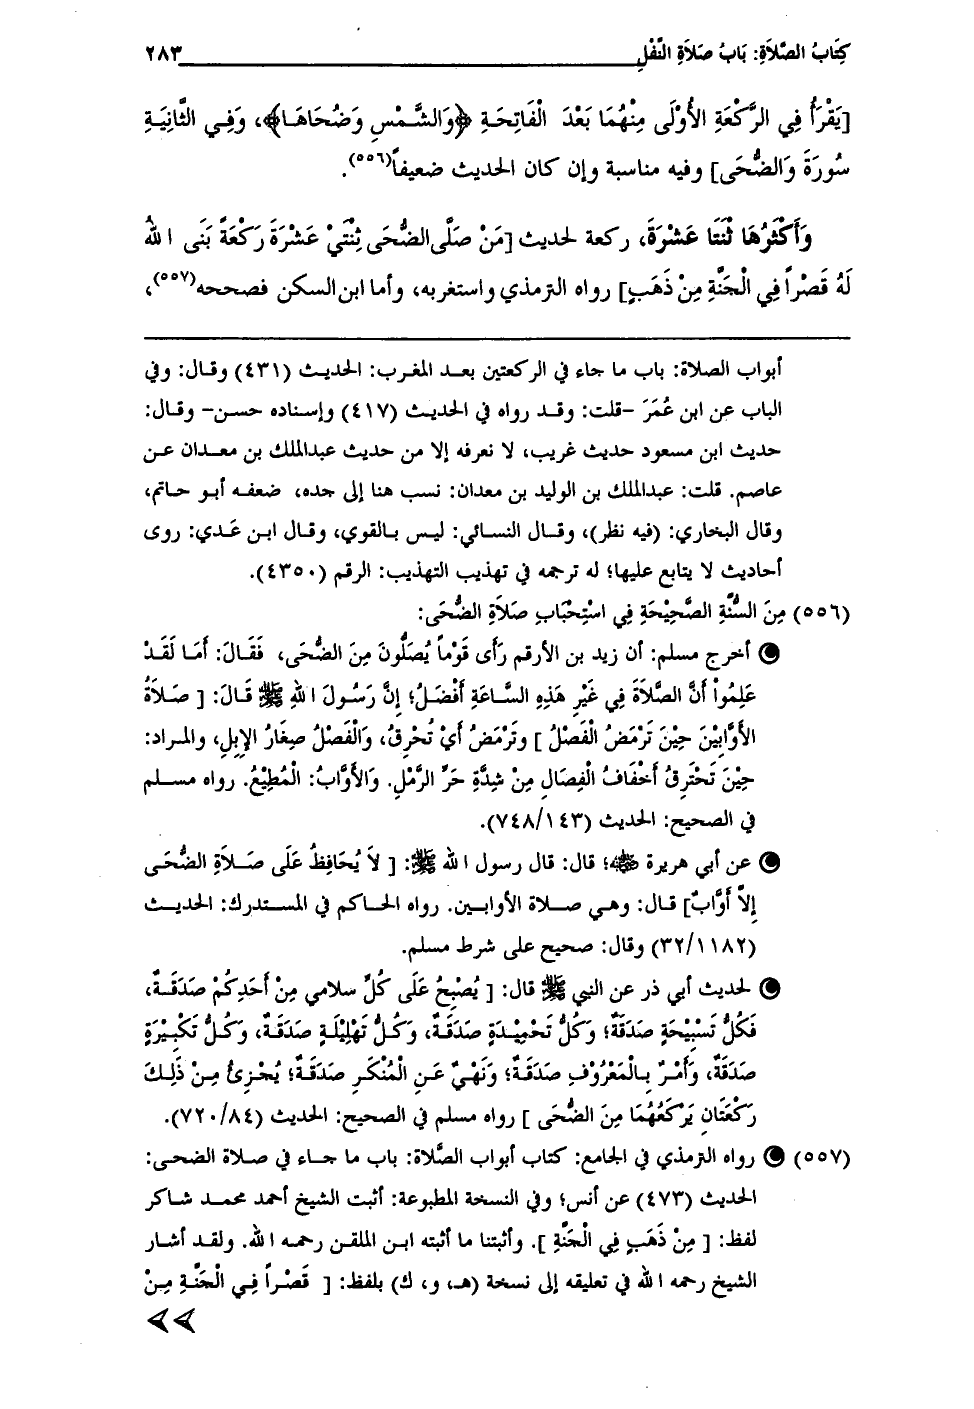 كِتَابُ الصَّلاَةِ: بَابُ صَلاَةِ النَّفْلِ ٢٨٣
[يَقْرَأُ فِي الرَّكْعَةِ الأُوْلَى مِنْهُمَا بَعْدَ الْفَاتِحَةِ ﴿وَالشَّمْسِ وَضُحَاهَا﴾، وَفِي الثَّانِيَةِ
سُورَةَ وَالضُّحَى] وفيه مناسبة وإن كان الحديث ضعيفاً(٥٥٦).
وَأَكْثَرُهَا ثْنَتَا عَشْرَةَ، ركعة لحديث [مَنْ صَلَّى الضُّحَى ثِنْتَيْ عَشْرَةَ رَكْعَةً بَنَى اللهُ
لَهُ قَصْراً فِي الْجَنَّةِ مِنْ ذَهَبٍ] رواه الترمذي واستغربه، وأما ابن السكن فصححه(٥٥٧)،
أبواب الصلاة: باب ما جاء في الركعتين بعد المغرب: الحديث (٤٣١) وقال: وفي
الباب عن ابن عُمَرَ -قلت: وقد رواه في الحديث (٤١٧) وإسناده حسن- وقال:
حديث ابن مسعود حديث غريب، لا نعرفه إلا من حديث عبدالملك بن معدان عن
عاصم. قلت: عبدالملك بن الوليد بن معدان: نسب هنا إلى جده، ضعفه أبو حاتم،
وقال البخاري: (فيه نظر)، وقال النسائي: ليس بالقوي، وقال ابن عَدي: روى
أحاديث لا يتابع عليها؛ له ترجمه في تهذيب التهذيب: الرقم (٤٣٥٠).
(٥٥٦) مِنَ السُّنَّةِ الصَّحِيْحَةِ فِي اسْتِحْبَابِ صَلاَةِ الضُّحَى:
أخرج مسلم: أن زيد بن الأرقم رَأَى قَوْماً يُصَلُّونَ مِنَ الضُّحَى، فَقَالَ: أَمَا لَقَدْ
عَلِمُواْ أَنَّ الصَّلاَةَ فِي غَيْرِ هَذِهِ السَّاعَةِ أَفْضَلُ؛ إِنَّ رَسُولَ اللهِ ﷺ قَالَ: [ صَلاَةُ
الأَوَّابِيْنَ حِيْنَ تَرْمَضُ الْفَصْلُ ] وتَرْمَضُ أَيْ تُحْرِقُ، وَالْفَصْلُ صِغَارُ الإِبِلِ، والمراد:
حِيْنَ تَحْتَرِقُ أَخْفَافُ الْفِصَالِ مِنْ شِدَّةِ حَرِّ الرَّمْلِ. وَالأَوَّابُ: الْمُطِيْعُ. رواه مسلم
في الصحيح: الحديث (٧٤٨/١٤٣).
عن أبي هريرة ﷺ؛ قال: قال رسول الله ﷺ: [ لاَ يُحَافِظُ عَلَى صَلاَةِ الضُّحَى
إِلاَّ أَوَّابٌ] قال: وهي صلاة الأوابين. رواه الحاكم في المستدرك: الحديث
(٣٢/١١٨٢) وقال: صحيح على شرط مسلم.
لحديث أبي ذر عن النبي ﷺ قال: [ يُصْبِحُ عَلَى كُلِّ سلامي مِنْ أَحَدِكُمْ صَدَقَةٌ،
فَكُلُّ تَسْبِيْحَةٍ صَدَقَةٌ؛ وَكُلُّ تَحْمِيْدَةٍ صَدَقَةٌ، وَكُلُّ تَهْلِيْلَةٍ صَدَقَةٌ، وَكُلُّ تَكْبِيْرَةٍ
صَدَقَةٌ، وَأَمْرٌ بِالْمَعْرُوْفِ صَدَقَةٌ؛ وَنَهْيٌ عَنِ الْمُنْكَرِ صَدَقَةٌ؛ يُجْزِئُ مِنْ ذَلِكَ
رَكْعَتَانِ يَرْكَعُهُمَا مِنَ الضُّحَى ] رواه مسلم في الصحيح: الحديث (٧٢٠/٨٤).
(٥٥٧) رواه الترمذي في الجامع: كتاب أبواب الصَّلاة: باب ما جاء في صلاة الضحى:
الحديث (٤٧٣) عن أنس؛ وفي النسخة المطبوعة: أثبت الشيخ أحمد محمد شاكر
لفظ: [ مِنْ ذَهَبٍ فِي الْجَنَّةِ ]. وأثبتنا ما أثبته ابن الملقن رحمه الله. ولقد أشار
الشيخ رحمه الله في تعليقه إلى نسخة (هـ، و، ك) بلفظ: [ قَصْراً فِي الْجَنَّةِ مِنْ